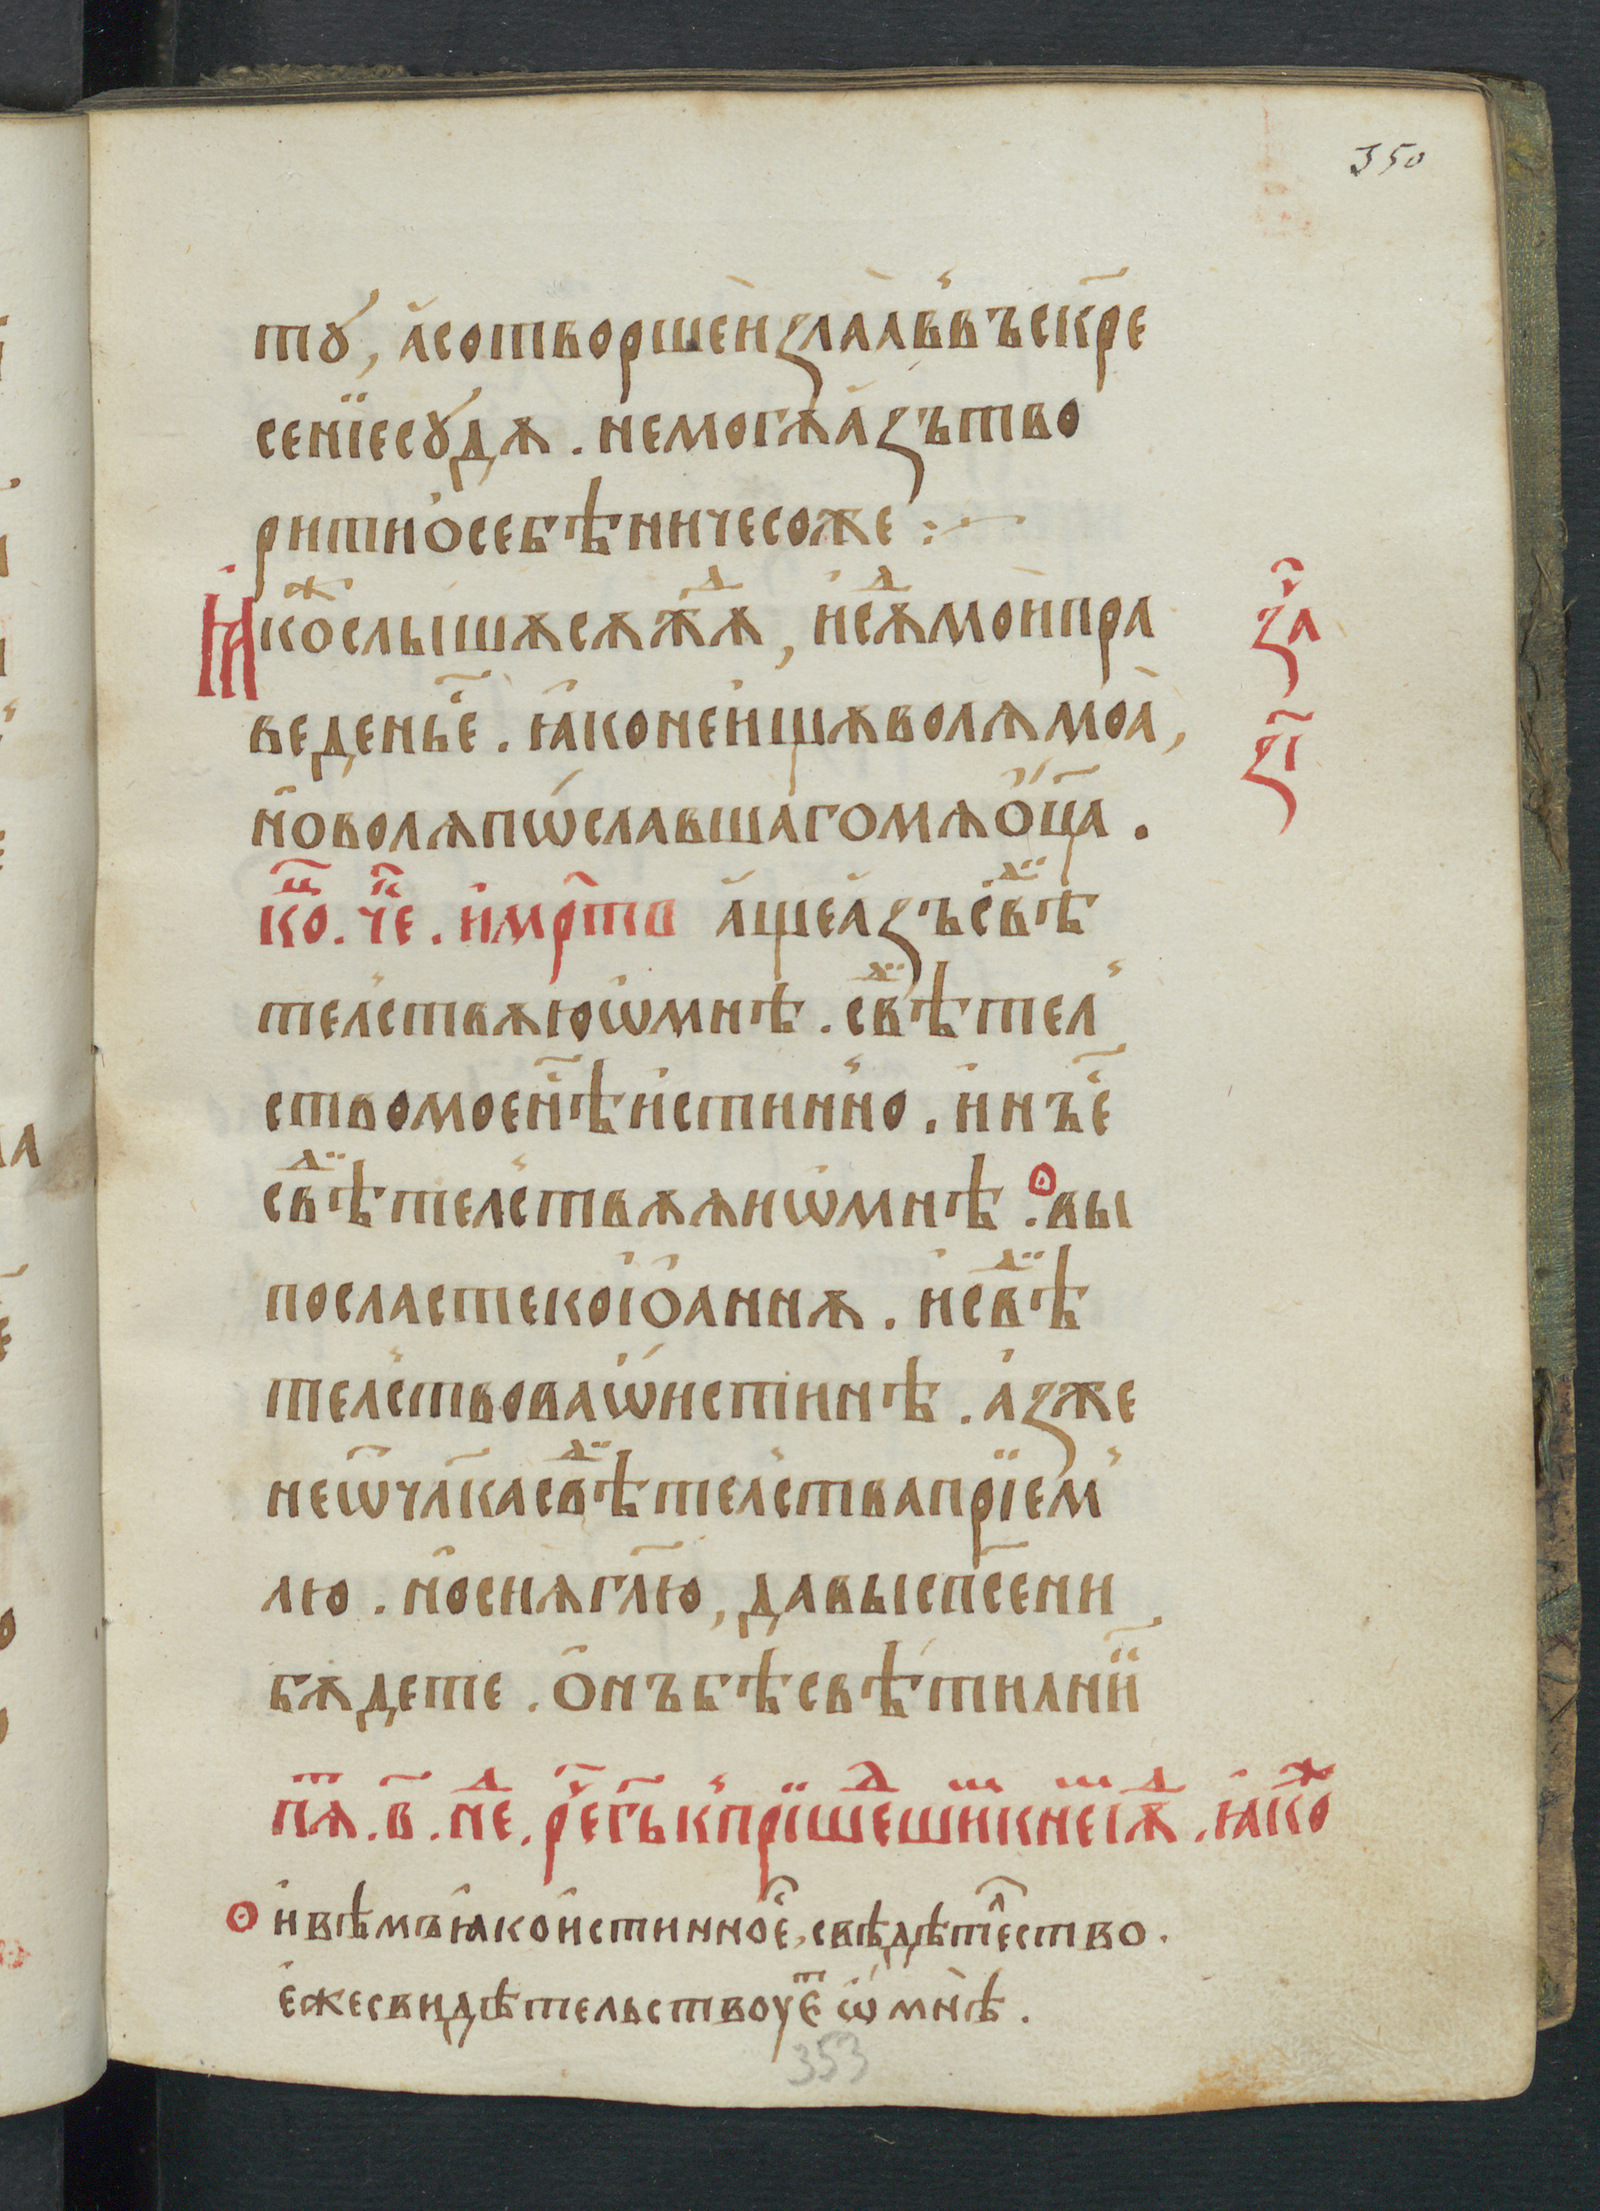 350
тꙋ, а҆сотворшеи ꙁлаа в въскр҃е
сенїесꙋдѧ. немогѫаꙁътво
ритиосебѣничесоже :~
Ꙗкⷤослышѫсѫжⷣѫ, исѫⷣмоипра
ведень҆е҃. ꙗконеищѫволѧмоа,
новолѧпѡславшагомѧо҃ца.
ꙁа҃
ꙁ҃і
кⷪ҇. че҃. имрⷬ҇тв ащеаꙁъсвⷣѣ
телствѫюѡмнѣ. свⷣѣтел
ствомоен҃ѣистинно. инъе҃
свⷣѣтелствѫѧиѡмнѣ. вы
посластекоіоаннѫ. исвⷣѣ
телствоваѡистінѣ. аꙁже
неѿчл҃касвⷣѣтелствапрїем
лю. носиѧгл҃ю, давысп҃сени
бѫдете. онъбѣсвѣтилнїи
пѧⷮ. в҃. неⷣ. ре҃ гь҃ кпрїшеⷣшикнеіѫⷣ. ꙗкⷤо
ивѣмъꙗкоистинное҃, свѣдѣтⷧ҇ество.
ежесвидѣтельствоуеⷮ ѡ мнѣ.
353